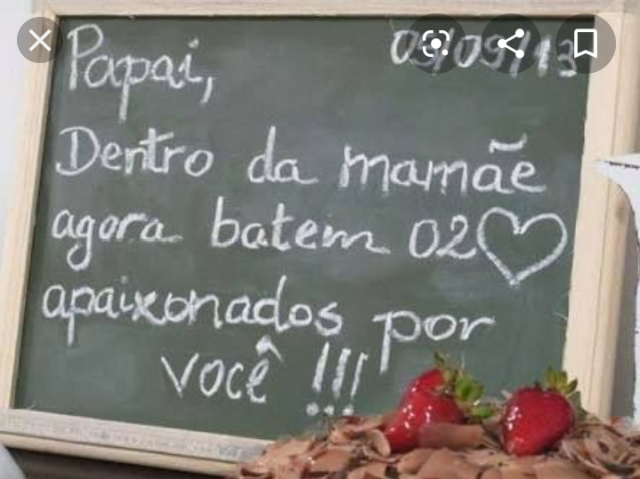 Papai,
Dentro da mamãe
agora batem 02♡
apaixonados por
você !!!